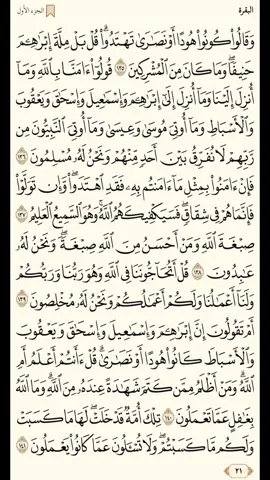 البقرة الجزء الأول
وَقَالُوا۟ كُونُوا۟ هُودًا أَوْ نَصَٰرَىٰ تَهْتَدُوا۟ ۗ قُلْ بَلْ مِلَّةَ إِبْرَٰهِۦمَ
حَنِيفًا ۖ وَمَا كَانَ مِنَ ٱلْمُشْرِكِينَ ١٣٥ قُولُوٓا۟ ءَامَنَّا بِٱللَّهِ وَمَآ
أُنزِلَ إِلَيْنَا وَمَآ أُنزِلَ إِلَىٰٓ إِبْرَٰهِۦمَ وَإِسْمَٰعِيلَ وَإِسْحَٰقَ وَيَعْقُوبَ
وَٱلْأَسْبَاطِ وَمَآ أُوتِىَ مُوسَىٰ وَعِيسَىٰ وَمَآ أُوتِىَ ٱلنَّبِيُّونَ مِن
رَّبِّهِمْ لَا نُفَرِّقُ بَيْنَ أَحَدٍ مِّنْهُمْ وَنَحْنُ لَهُۥ مُسْلِمُونَ ١٣٦
فَإِنْ ءَامَنُوا۟ بِمِثْلِ مَآ ءَامَنتُم بِهِۦ فَقَدِ ٱهْتَدَوا۟ ۖ وَّإِن تَوَلَّوْا۟
فَإِنَّمَا هُمْ فِى شِقَاقٍ ۖ فَسَيَكْفِيكَهُمُ ٱللَّهُ ۚ وَهُوَ ٱلسَّمِيعُ ٱلْعَلِيمُ ١٣٧
صِبْغَةَ ٱللَّهِ ۖ وَمَنْ أَحْسَنُ مِنَ ٱللَّهِ صِبْغَةً ۖ وَنَحْنُ لَهُۥ
عَٰبِدُونَ ١٣٨ قُلْ أَتُحَآجُّونَنَا فِى ٱللَّهِ وَهُوَ رَبُّنَا وَرَبُّكُمْ
وَلَنَآ أَعْمَٰلُنَا وَلَكُمْ أَعْمَٰلُكُمْ وَنَحْنُ لَهُۥ مُخْلِصُونَ ١٣٩
أَمْ تَقُولُونَ إِنَّ إِبْرَٰهِۦمَ وَإِسْمَٰعِيلَ وَإِسْحَٰقَ وَيَعْقُوبَ
وَٱلْأَسْبَاطَ كَانُوا۟ هُودًا أَوْ نَصَٰرَىٰ ۗ قُلْ ءَأَنتُمْ أَعْلَمُ أَمِ
ٱللَّهُ ۗ وَمَنْ أَظْلَمُ مِمَّن كَتَمَ شَهَٰدَةً عِندَهُۥ مِنَ ٱللَّهِ ۗ وَمَا ٱللَّهُ
بِغَٰفِلٍ عَمَّا تَعْمَلُونَ ١٤٠ تِلْكَ أُمَّةٌ قَدْ خَلَتْ ۖ لَهَا مَا كَسَبَتْ
وَلَكُم مَّا كَسَبْتُمْ ۖ وَلَا تُسْـَٔلُونَ عَمَّا كَانُوا۟ يَعْمَلُونَ ١٤١
٢١